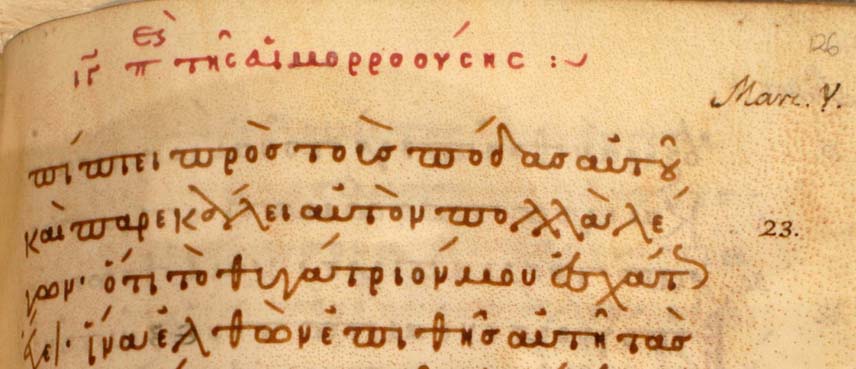 126
ιγ π τῆς αἱμορροούσης :~
Marc. V.
πίπτει πρὸς τοὺς πόδας αὐτοῦ
καὶ παρεκάλει αὐτὸν πολλὰ λέ
23.
γων. ὅτι τὸ θυγάτριόν μου ἐσχάτ
ἔχει. ἵνα ἐλθὼν ἐπιθῇς αὐτῇ τὰς